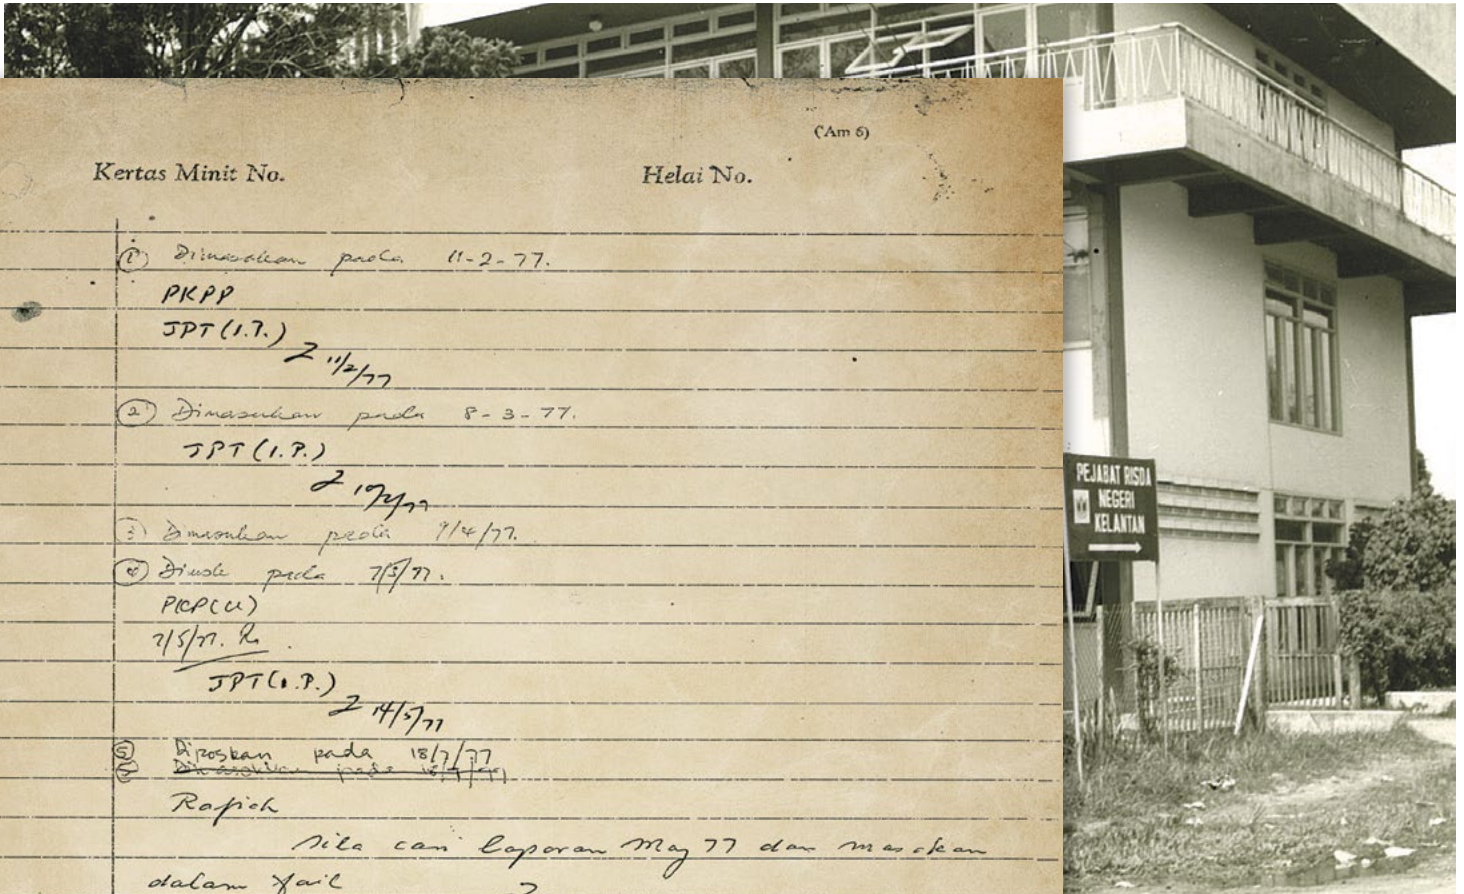 (Am 6)
Kertas Minit No.
Helai No.
① Dimasukan pada 11-2-77.
PKPP
JPT (I.P.)
11/2/77
② Dimasukan pada 8-3-77.
JPT (I.P.)
③ Dimasukan pada 9/4/77.
④ pada 7/5/77.
PKP(U)
7/5/77.
JPT (I.P.)
14/5/77
⑤ Diposkan pada 18/7/77
Dimasukkan pada 18/7/77
sila cari laporan May 77 dan masukan
dalam fail
PEJABAT RISDA
NEGERI
KELANTAN